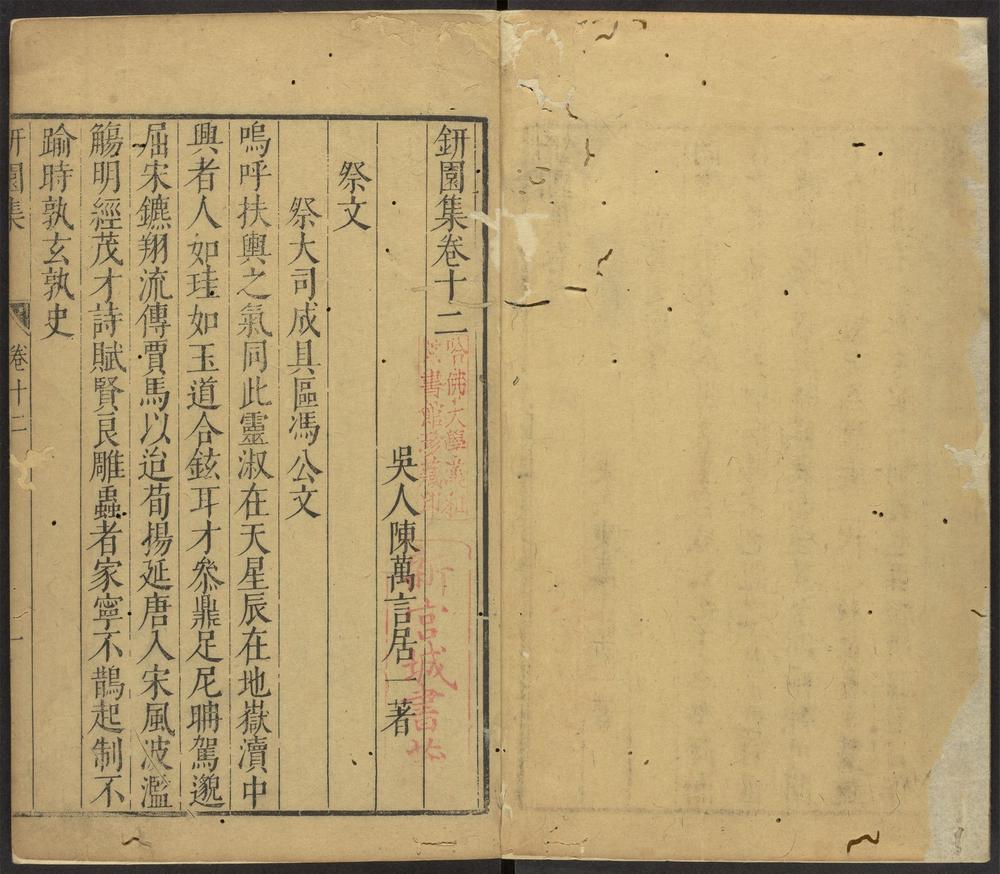 鈃園集卷十二
吳人陳萬言居一著
祭文
祭大司成具區馮公文
嗚呼扶輿之氣同此靈淑在天星辰在地嶽瀆中
興者人如珪如玉道合鉉耳才叅鼎足尼聃駕邈
屈宋鑣翔流傳賈馬以迨荀揚延唐入宋風波濫
觴明經茂才詩賦賢良雕蟲者家寧不鵲起制不
踰時孰玄孰史
園集
卷十二
一
哈佛大學漢和
書館珍藏印
新古城書